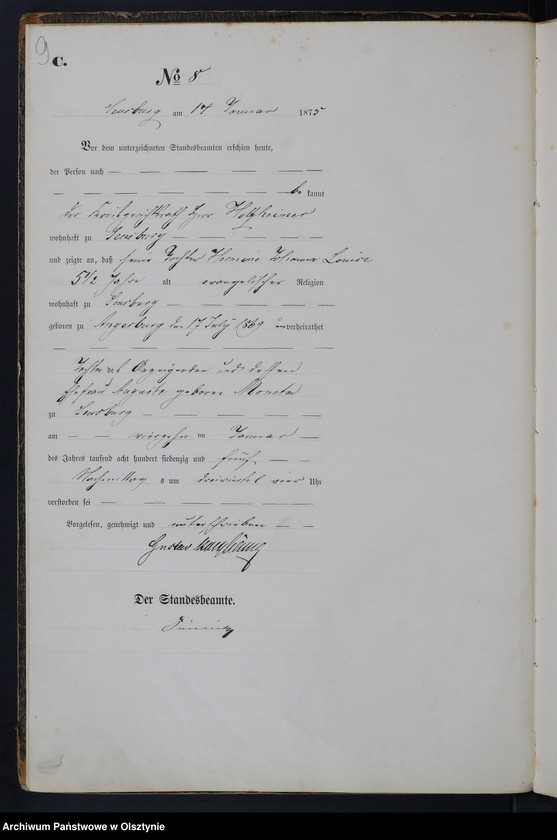 9
C.
No 8
Sensburg am 17 Januar 1875
Vor dem unterzeichneten Standesbeamten erschien heute,
der Person nach
be kannt
der Kreisgerichtsrath Herr
wohnhaft zu Sensburg
und zeigte an, daß seine Tochter Hermine Johanna Louise
5 1/2 Jahre alt evangelischer Religion
wohnhaft zu Sensburg
geboren zu Angerburg den 17 July 1869 unverheirathet
Tochter des Anzeigenden und dessen
Ehefrau Auguste geborne
zu Sensburg
am vierzehn ten Januar
des Jahres tausend acht hundert siebenzig und fünf
Nachmittag s um dreiviertel vier Uhr
verstorben sei
Vorgelesen, genehmigt und unterschrieben
Gustav
Der Standesbeamte.
Archiwum Państwowe w Olsztynie